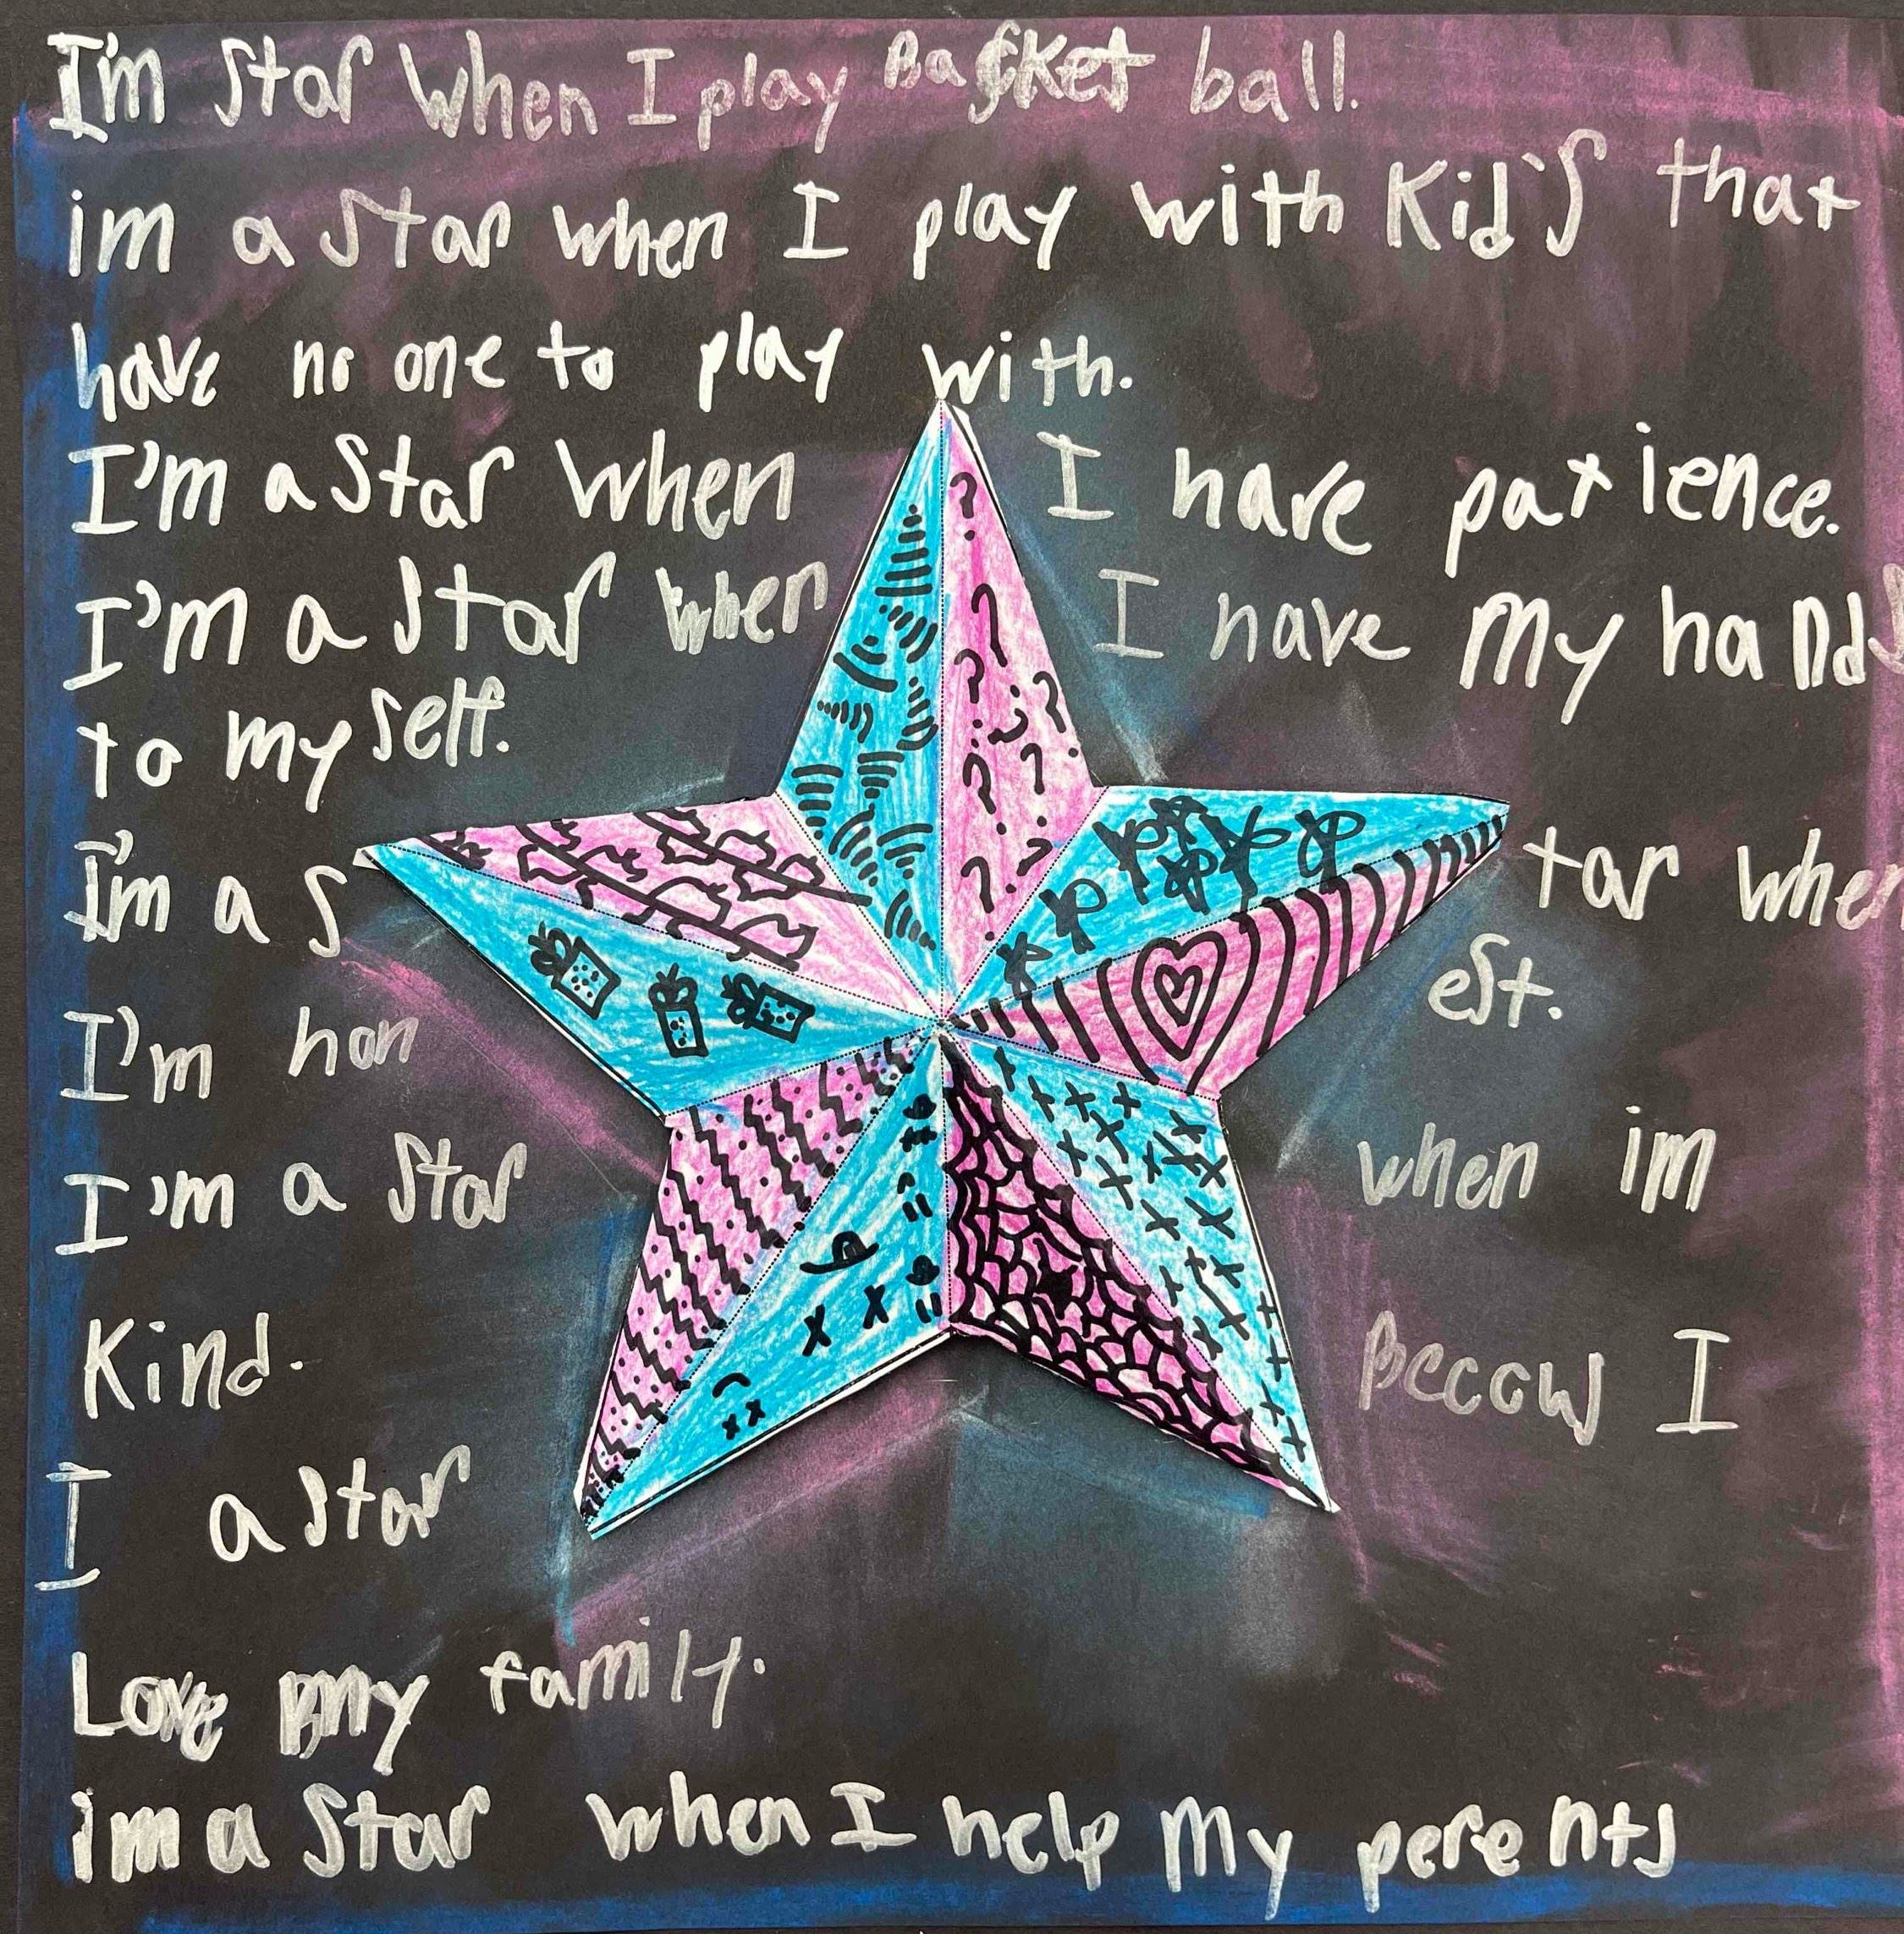 I'm star when I play Basket ball.
im a star when I play with Kid's that
have no one to play with.
I'm a star when I have patience.
I'm a star when I have my hands
to my self.
I'm a s tar when
I'm hon est.
I'm a star when im
Kind.
I a star Becows I
Love my family.
im a star when I help my perents